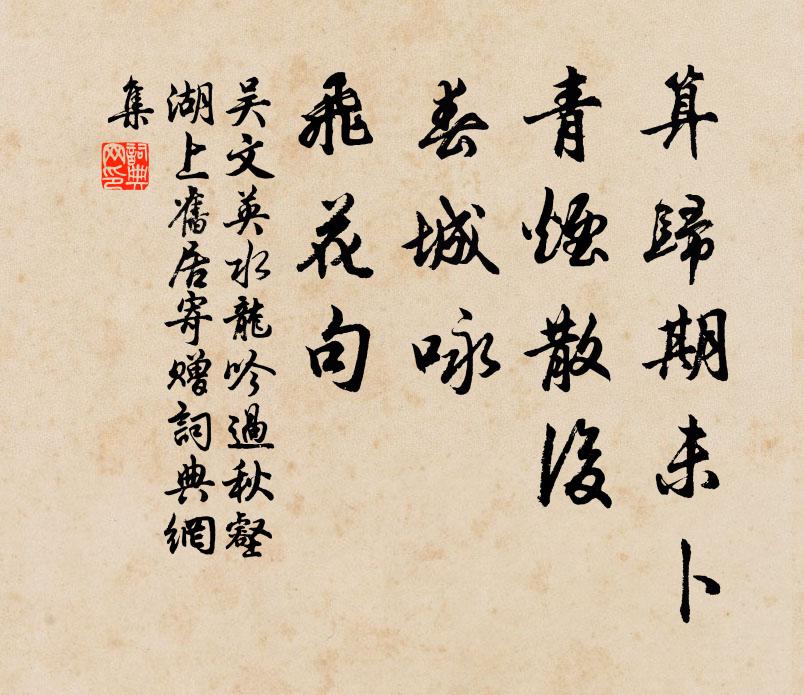 算歸期未卜
青煙散後
春城咏
飛花句
吳文英水龍吟過秋壑
湖上舊居寄贈詞典網
集
詞典
网印